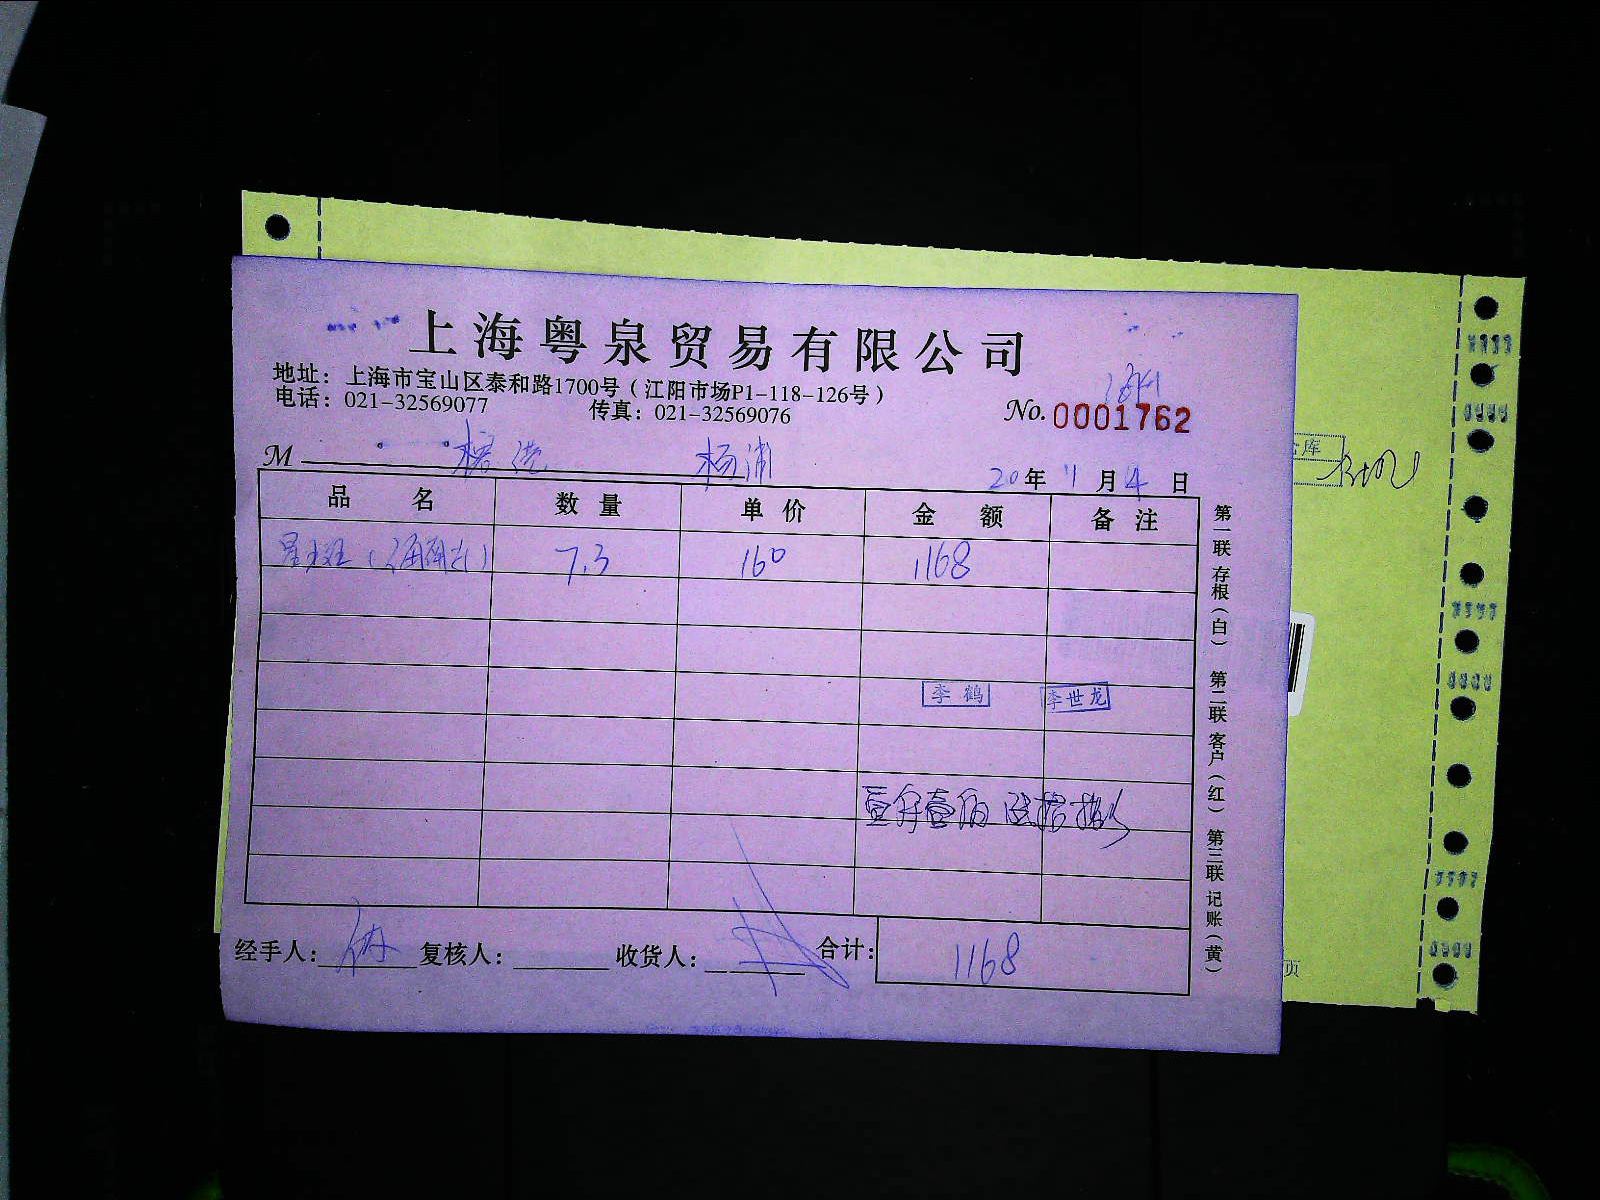 上海粤泉贸易有限公司
地址：上海市宝山区泰和路1700号（江阳市场P1-118-126号）
电话：021-32569077 传真：021-32569076
No. 0001762
M 杨浦 20年 11月 4日
品名 数量 单价 金额 备注
星斑 7.3 160 1168
李鹤 李世龙
壹仟壹佰陆拾捌
经手人： 复核人： 收货人： 合计： 1168
第一联 存根（白） 第二联 客户（红） 第三联 记账（黄）
库
页